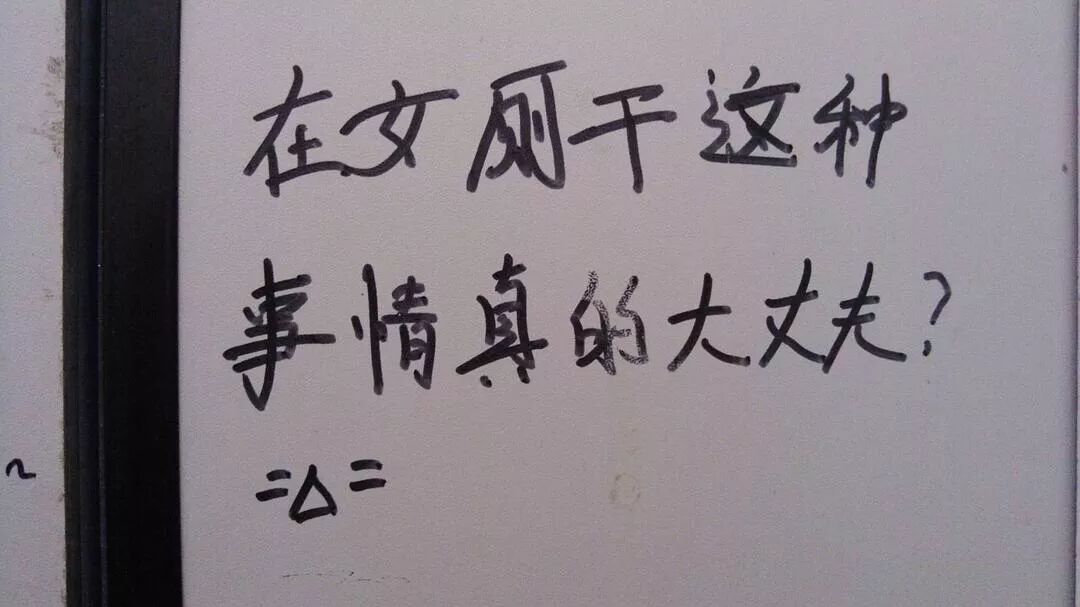 在女厕干这种
事情真的大丈夫?
=△=
~